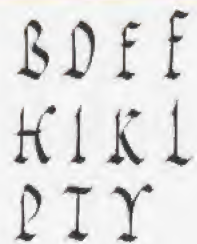 B D F F
H I K L
P T Y